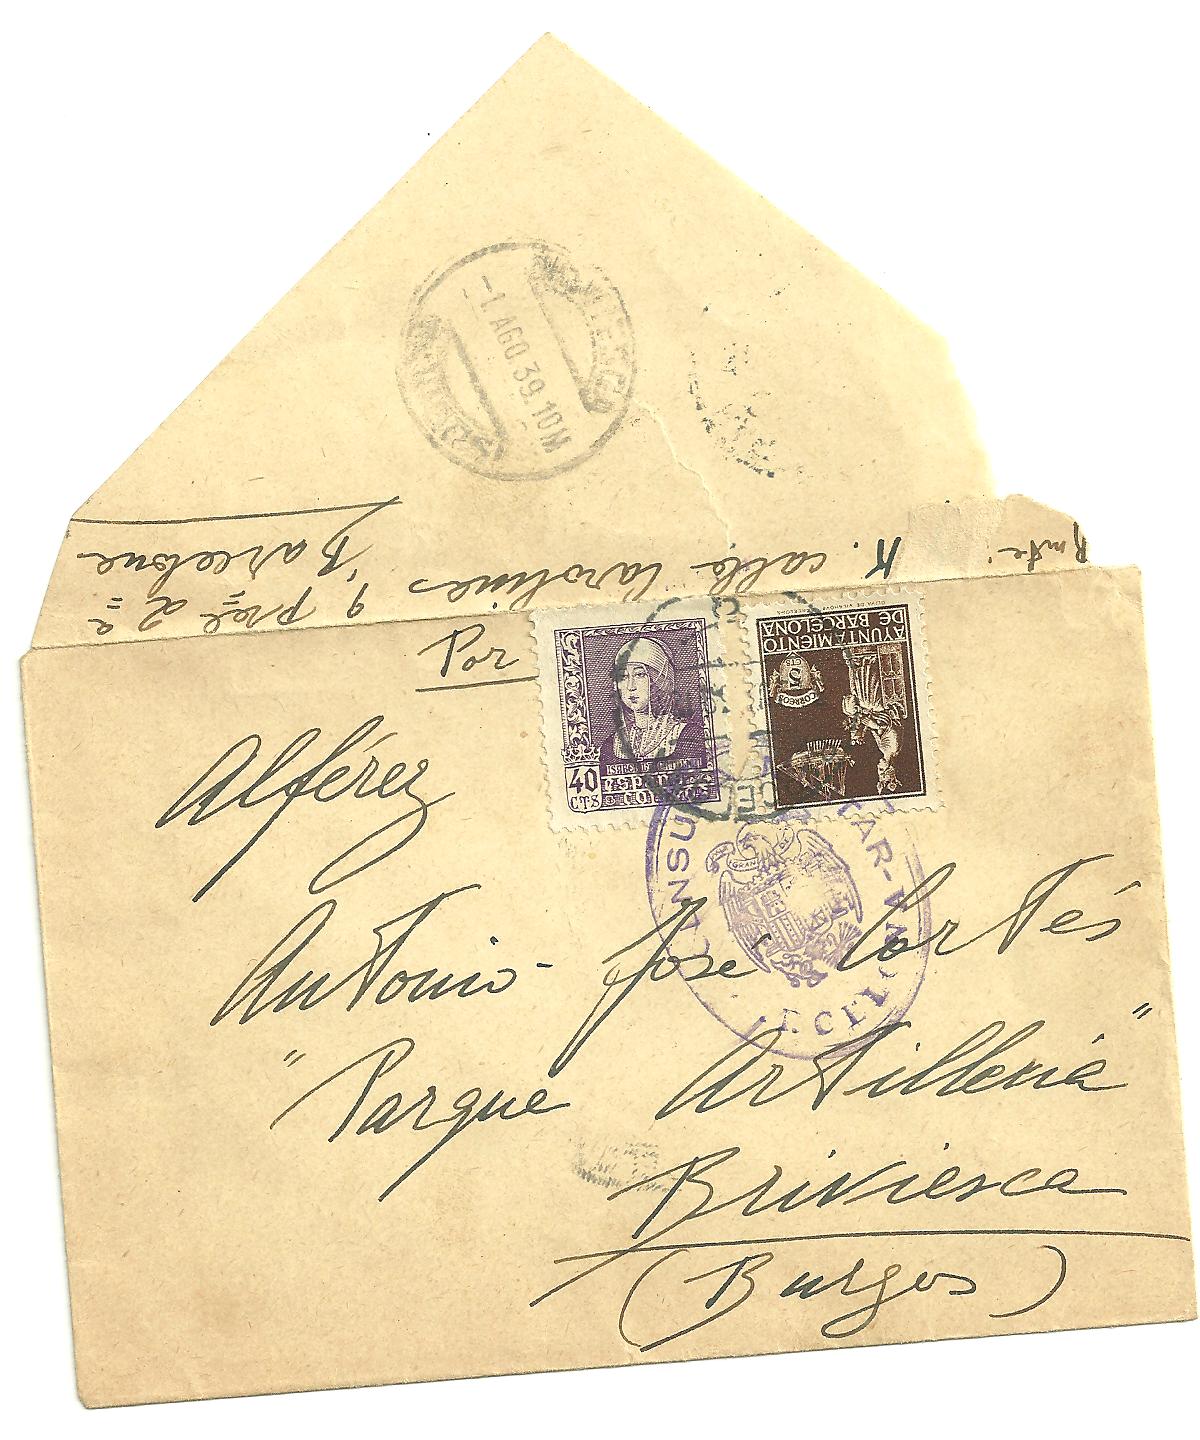 -1.AGO.39.10M
Rmte:
calle Carolines 9 pral 2ª
Barcelona
Por
ISABEL
40
CTS
AYUNTAMIENTO
DE BARCELONA
CORREOS
5
CTS
OLIVA DE VILANOVA BARCELONA
Alférez
Antonio-José Cortés
"Parque Artillería"
Briviesca
(Burgos)